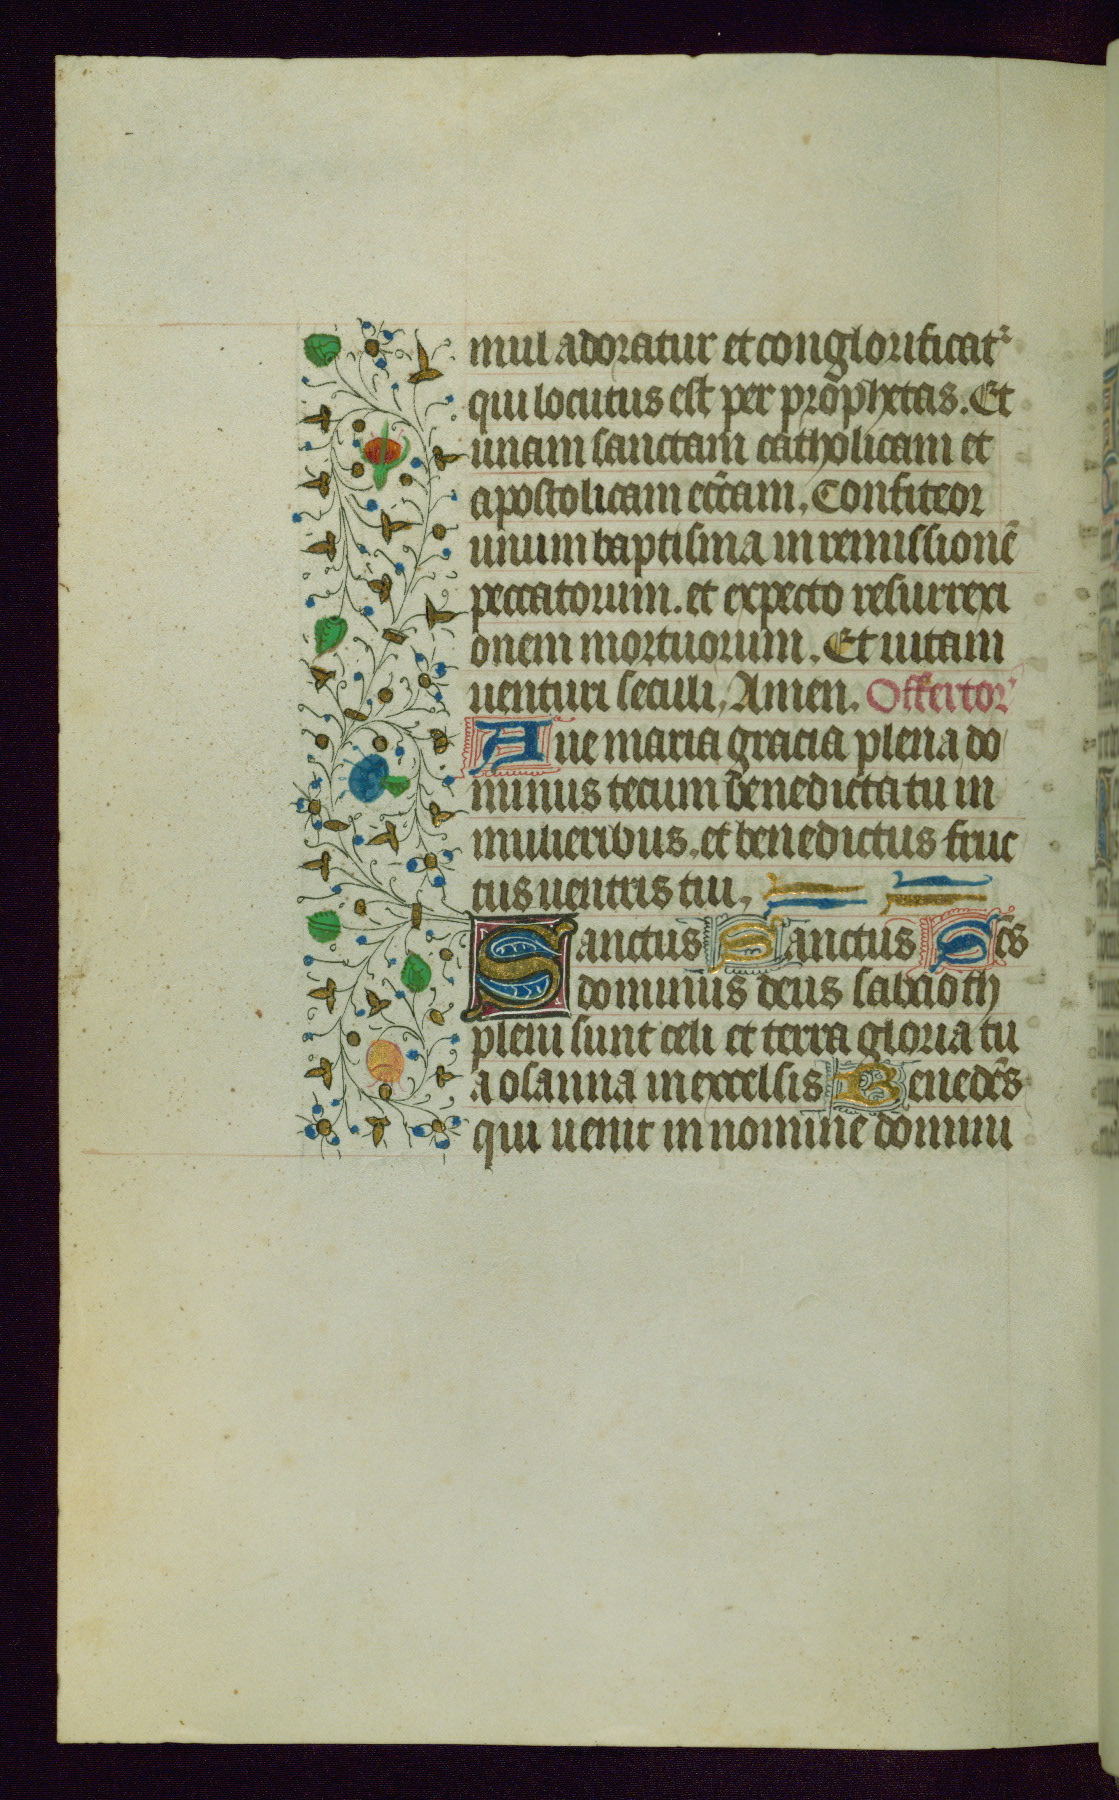 mul adoratur et conglorificat᷑
qui locutus est per prophetas. Et
unam sanctam catholicam et
apostolicam ecc̄am. Confiteor
unum baptisma in remissionē
peccatorum. et expecto resurrexi
onem mortuorum. Et uitam
uenturi seculi, Amen. Offertor᷑
Aue maria gracia plena do
minus tecum benedicta tu in
mulieribus. et benedictus fruc
tus uentris tui,
Sanctus Sanctus Sc̄s
dominus deus sabaoth
pleni sunt celi et terra gloria tu
a osanna in excelsis Benedc̄s
qui uenit in nomine domini